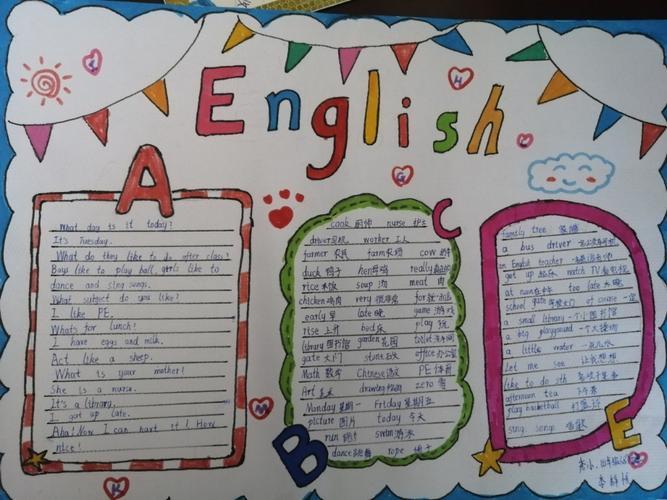 English
A
What day is it today?
It's Tuesday.
What do they like to do after class?
Boys like to play ball, girls like to
dance and sing songs.
What subject do you like?
I like PE.
Whats for lunch!
I have eggs and milk.
Act like a sheep.
What is your mother!
She is a nurse.
It's a library.
I got up late.
Aha! Now I can hart it! How
nice!
C
cook 厨师 nurse 护士
driver 司机 worker 工人
farmer 农民 farm 农场 cow 奶牛
duck 鸭子 hen 母鸡 really
rice 米饭 soup 汤 meat 肉
chicken 鸡肉 very 很非常 for
early 早 late 晚 game 游戏
rise 上升 bed 床 play 玩
library 图书馆 garden 花园 toilet
gate 大门 office 办公室
Math 数学 Chinese 语文 PE 体育
Art 美术 drawing zero 零
Monday 星期一 Friday 星期五
picture 图片 today 今天
run 跑 swim 游泳
dance 跳舞 rope 绳子
B
family tree
a bus driver
an English teacher
get up 起床 watch TV 看电视
at noon 在中午 too late 太晚
school gate 学校大门 of course 一定
a small library 一个小图书馆
a big playground 一个大操场
a little water 一点儿水
Let me see 让我想想
like to do sth
afternoon tea 下午茶
play basketball 打篮球
sing songs 唱歌
E